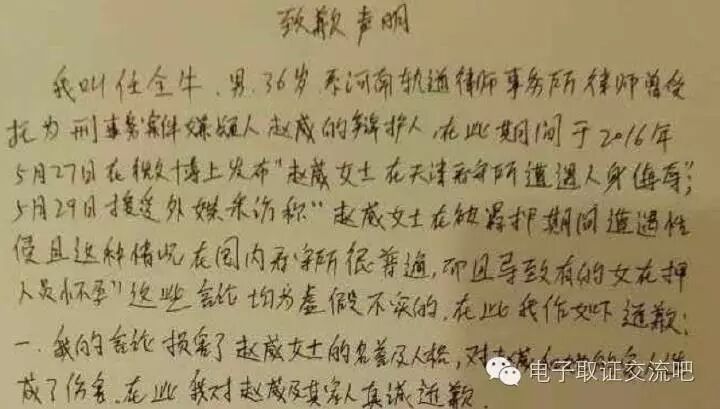 致歉声明
我叫任全牛、男、36岁、系河南轨道律师事务所律师曾受
托为刑事案件嫌疑人赵威的辩护人、在此期间于2016年
5月27日在微博上发布"赵威女士在天津看守所遭遇人身侮辱";
5月29日接受外媒采访称"赵威女士在被羁押期间遭遇性
侵且这种情况在国内看守所很普通,而且导致有的女在押
人员怀孕"这些言论均为虚假不实的、在此我作如下道歉:
一、我的言论损害了赵威女士的名誉及人格,对赵威
成了伤害、在此我对赵威及其家人真诚道歉.
电子取证交流吧